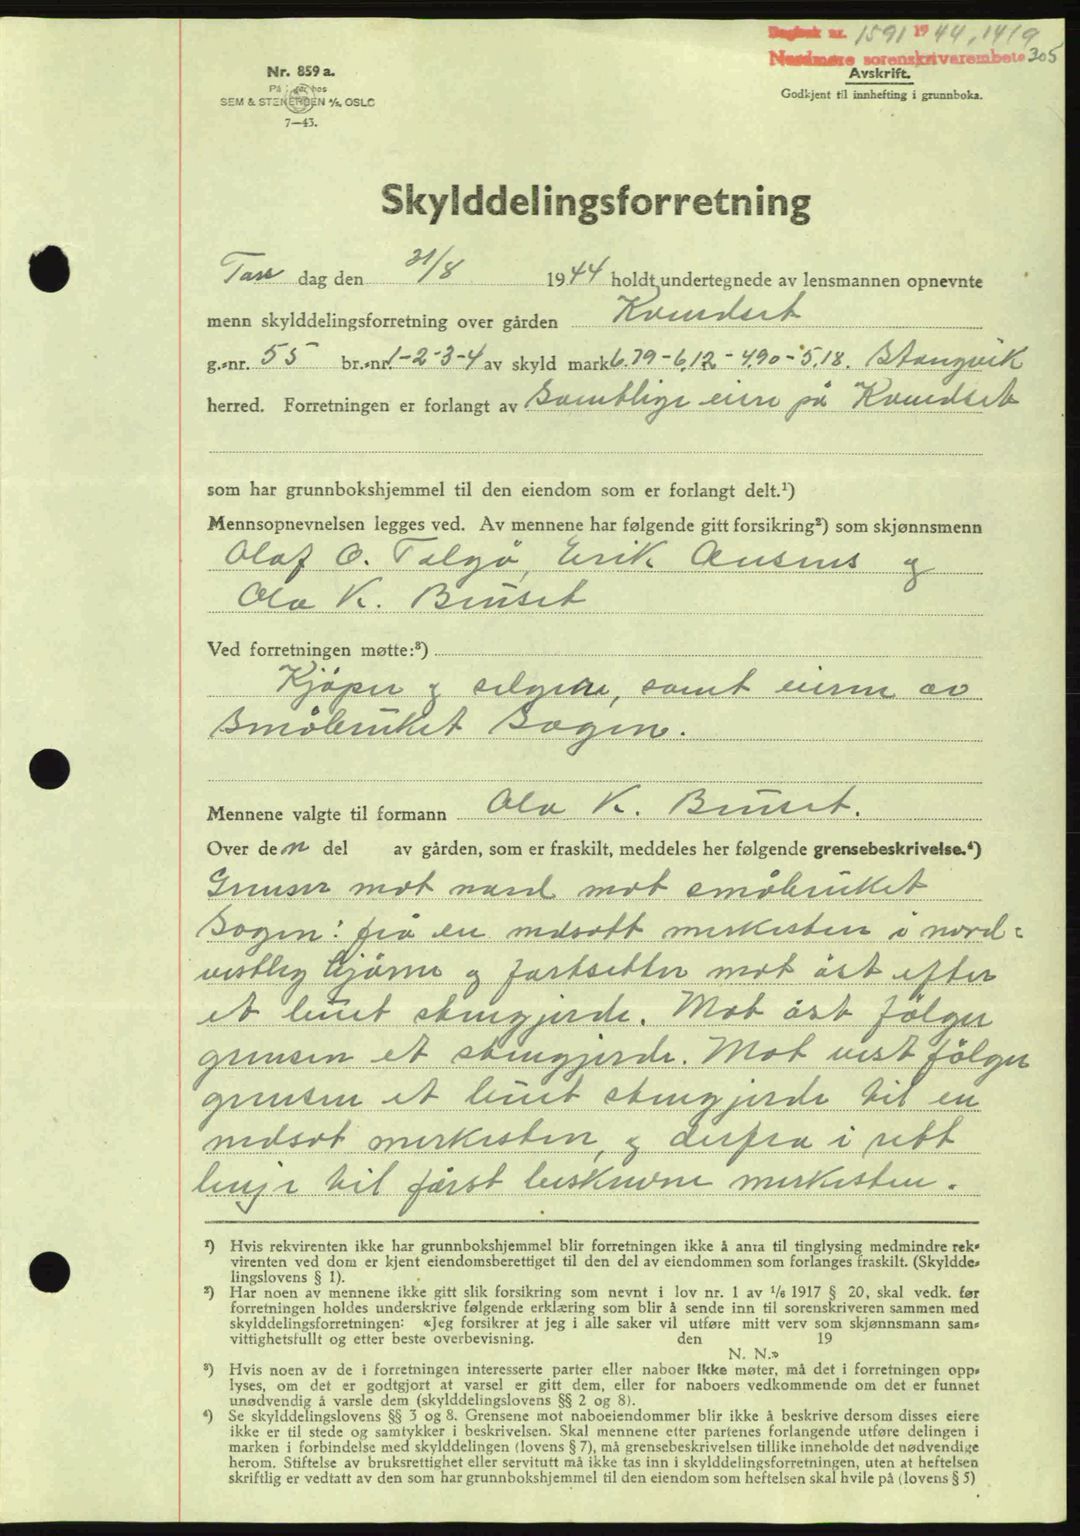 Dagbok nr. 1591 1944, 1419
Nordmøre sorenskriverembete 305
Nr. 859 a.
På lager hos
SEM & STENERSEN A/S, OSLO
7—43.
Avskrift.
Godkjent til innhefting i grunnboka.
Skylddelingsforretning
dag den 31/8 1944 holdt undertegnede av lensmannen opnevnte
menn skylddelingsforretning over gården Kvendset
g.-nr. 55 br.-nr. 1-2-3-4 av skyld mark 6.79-6,12-4,90-5,18. Stangvik
herred. Forretningen er forlangt av Samtlige eiere på Kvendset
som har grunnbokshjemmel til den eiendom som er forlangt delt.¹)
Mennsopnevnelsen legges ved. Av mennene har følgende gitt forsikring²) som skjønnsmenn
Olaf O. Talgö, Erik Aasens og
Ola K. Bruset
Ved forretningen møtte:³)
Kjöper og selgere, samt eieren av
Småbruket Sagen.
Mennene valgte til formann Ola K. Bruset.
Over den del av gården, som er fraskilt, meddeles her følgende grensebeskrivelse.⁴)
Grenser mot nord mot småbruket
Sagen: fra en nedsatt merkesten i nord-
vestlig hjörne og fortsetter mot öst efter
et lenet stengjerde. Mot öst fölger
grensen et stengjerde. Mot vest fölger
grensen et lenet stengjerde til en
nedsat merkesten, og derfra i rett
linje til först beskrevne merkesten.
¹) Hvis rekvirenten ikke har grunnbokshjemmel blir forretningen ikke å anta til tinglysing medmindre rek-
virenten ved dom er kjent eiendomsberettiget til den del av eiendommen som forlanges fraskilt. (Skyldde-
lingslovens § 1).
²) Har noen av mennene ikke gitt slik forsikring som nevnt i lov nr. 1 av 1/6 1917 § 20, skal vedk. før
forretningen holdes underskrive følgende erklæring som blir å sende inn til sorenskriveren sammen med
skylddelingsforretningen: «Jeg forsikrer at jeg i alle saker vil utføre mitt verv som skjønnsmann sam-
vittighetsfullt og etter beste overbevisning. den 19
N. N.»
³) Hvis noen av de i forretningen interesserte parter eller naboer ikke møter, må det i forretningen opp-
lyses, om det er godtgjort at varsel er gitt dem, eller for naboers vedkommende om det er funnet
unødvendig å varsle dem (skylddelingslovens §§ 2 og 8).
⁴) Se skylddelingslovens §§ 3 og 8. Grensene mot naboeiendommer blir ikke å beskrive dersom disses eiere
ikke er til stede og samtykker i beskrivelsen. Skal mennene etter partenes forlangende utføre delingen i
marken i forbindelse med skylddelingen (lovens § 7), må grensebeskrivelsen tillike inneholde det nødvendige
herom. Stiftelse av bruksrettighet eller servitutt må ikke tas inn i skylddelingsforretningen, uten at heftelsen
skriftlig er vedtatt av den som har grunnbokshjemmel til den eiendom som heftelsen skal hvile på (lovens § 5)